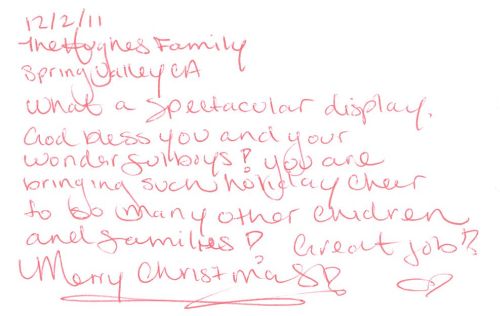 12/2/11
The Hughes Family
Spring Valley CA
What a spectacular display.
God bless you and your
wonderful boys! you are
bringing such holiday cheer
to so many other children
and families! Great job!
Merry Christmas!